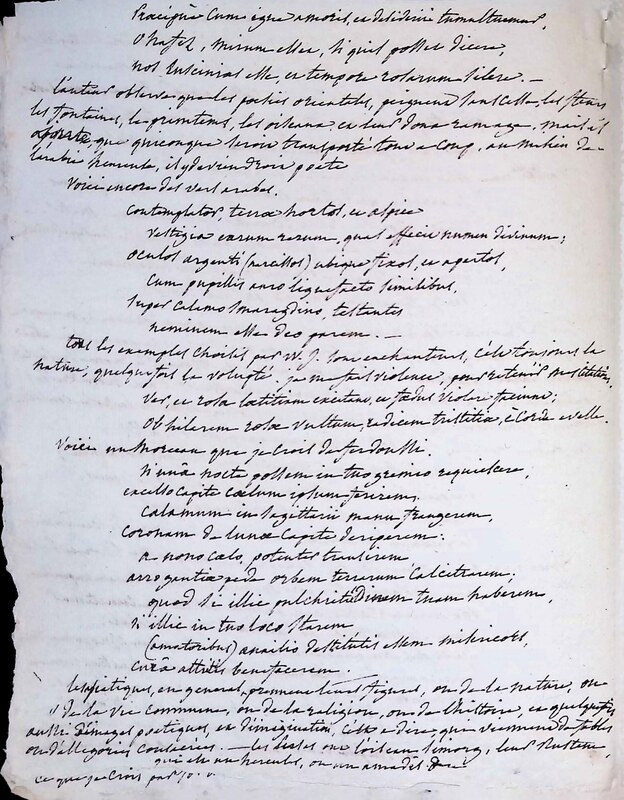 Praecipuè cum igne amoris, ex desiderii tumultuemur,
O hafez, mirum esset, si quis posset dicere,
nos luscinias esse, et tempore rosarum silere. —
l'auteur observe que les poetes orientales, peignent sans cesse, les fleurs
les fontaines, le printems, les oiseaux, et leur doux ramage, mais il
ajoute, que quiconque seroit transporté tout a coup, au milieu de
l'arabie heureuse, il y deviendroit poëte
Voici encore des vers arabes.
Contemplator, terrae hortos, et aspice
Vestigia earum rerum, quas effecit numen divinum;
oculos argenti (narcissos) ubique fixos, et apertos,
Cum pupillis auro liquefacto similibus,
super calamo smaragdino, testantes
neminem esse deo parem. —
tous les exemples choisis par W. J. sont enchanteurs, c'est toujours la
nature, quelquefois la volupté. je me fais violence, pour
Ver, et rosa laetitiam excitant, et
Ob hilarem rosae vultum, radicem tristitiae, è corde evelle.
Voici un morceau que je crois de ferdoussi.
si unâ nocte possem in tuo gremio requiescere,
excelso capite coelum ipsum ferirem,
Calamum in sagittarii manu frangerem,
Coronam de lunae capite deriperem:
a nono coelo, potenter transirem
arrogantiae pede orbem terrarum calcitrarem;
quod si illic pulchritudinem tuam haberem,
si illic in tuo loco starem
(amatoribus) auxilio destitutis essem misericors,
curâ attritis benefacerem.
les asiatiques, en general, prennent leurs figures, ou de la nature, ou
de la vie commune, ou de la religion, ou de l'histoire, et quelquefois
aussi d'images poetiques, et d'imagination, c'est a dire, qui viennent de fables
ou d'allegories — les oiseau simorg, leur Rustem,
qui est un hercule, ou un amadis.
ce que je crois